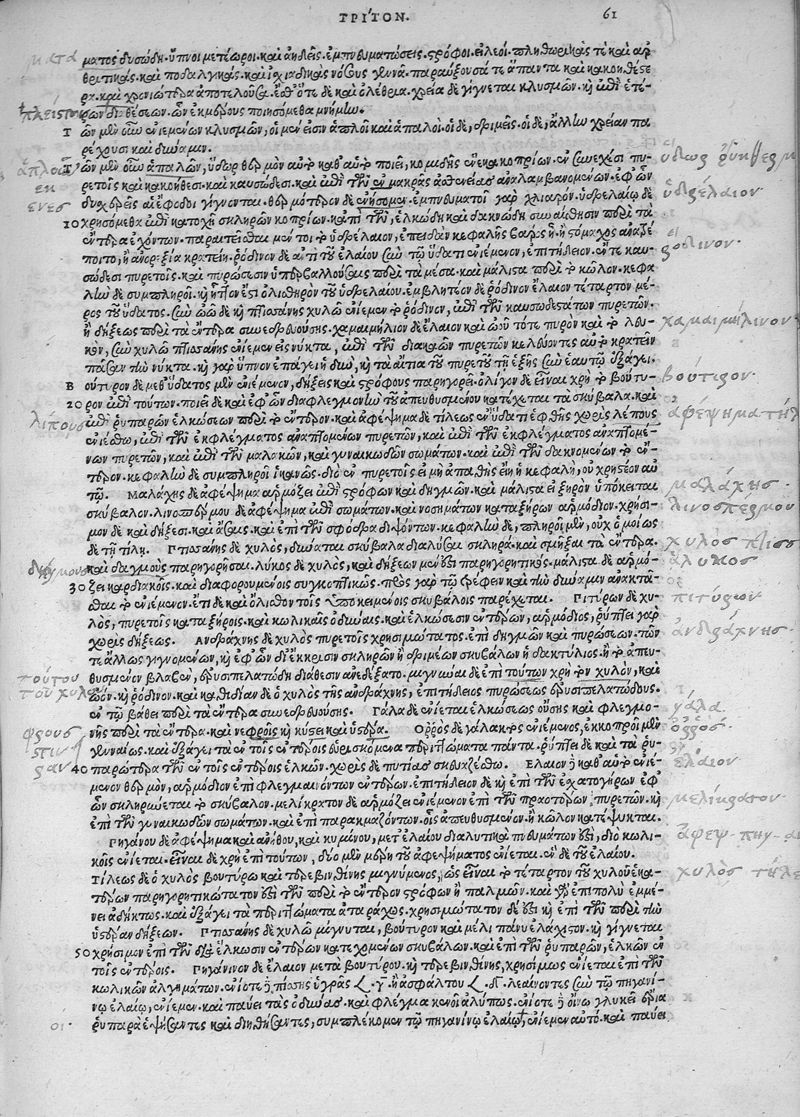 ΤΡΙΤΟΝ. 61
ματος δυσώδη· ὕπνοι μετέωροι καὶ ἀηδεῖς. ἐμπνευματώσεις. στρόφοι. εἰλεοί. πληθωρικὰς τὲ καὶ ἀρ-
θριτικὰς. καὶ ποδαλγικὰς. καὶ ἰσχιαδικὰς νόσους γεννᾶ. παραύξουσά τε ἅπαντα καὶ κακοήθέστε-
ρα. καὶ χρονιώτερα ἀποτελοῦσα. ἔσθ' ὅτε δὲ καὶ ὀλέθρια. χρεία δὲ γίγνεται κλυσμῶν. κἢ ἐπὶ ἑτέ-
ρων διαθέσεων. ὧν ἐκ μέρους ποιησόμεθα μνήμην.
Τ ῶν μὲν οὖν ἐνιεμένων κλυσμῶν, οἱ μέν εἰσιν ἁπλοῖ καὶ ἁπαλοί. οἱ δὲ, δριμεῖς. οἱ δὲ, ἄλλην χρείαν πα
ρέχουσι καὶ δύναμιν.
Τ ῶν μὲν οὖν ἁπαλῶν, ὕδωρ θερμὸν αὐτὸ καθ' αὑτὸ ποιεῖ, κομιδῆς ἕνεκα κοπρίων. ἐν συνεχέσι πυ-
ρετοῖς καὶ κακοήθεσι. καὶ καυσώδεσι. καὶ ἐπὶ τῶν ἐν μακρᾶς ἀσθενείας ἀναλαμβανομένων. ἐφ' ὧν
δυσχερεῖς αἱ ἔφοδοι γίγνονται. θερμότερον δὲ ἐνήσομεν. ἐμπνευματοῖ γὰρ χλιαρόν. ὑδρελαίῳ δὲ
10 χρησόμεθα ἐπὶ κατοχῇ σκληρῶν κοπρίων. καὶ ἐπὶ τῶν, ἑλκώδη καὶ δακνώδη συναίσθησιν περὶ τὰ
ἔντερα ἐχόντων. παραιτεῖσθαι μέν τοι τὸ ὑδρέλαιον, ἐπειδὰν κεφαλῆς βάρος ᾖ. ἢ στόμαχος ἀναδέ
ποιτο, ἢ ἀνορεξία κρατείη. ῥόδινον δὲ ἀντὶ τοῦ ἐλαίου σὺν τῷ ὕδατι ἐνιέμενον, ἐπιτήδειον. ἔν τε καυ-
σώδεσι πυρετοῖς. καὶ πυρώσεσιν ὑπερβαλλούσαις περὶ τὰ μέσα. καὶ μάλιστα περὶ τὸ κῶλον. κεφα
λὴν δὲ συμπληροῖ. κἢ ἧττόν ἐστι ὀλισθηρὸν τοῦ ὑδρελαίου. ἐμβλητέον δὲ ῥόδινον ἔλαιον τέταρτον μέ-
ρος τοῦ ὕδατος. σὺν ὠῷ δὲ κἢ πτισσάνης χυλῷ ἐνιέμενον τὸ ῥόδινον, ἐπὶ τῶν καυσωδεστάτων πυρετῶν.
ἢ δήξεως περὶ τὰ ἔντερα συνεδρευούσης. χαμαιμήλινον δὲ ἔλαιον καὶ ὠοῦ τότε πυρὸν καὶ τὸ λευ-
κὸν, σὺν χυλῷ πτισσάνης ἐνιέμενον εἰς νύκτα, ἐπὶ τῶν διακαῶν πυρετῶν κελεύοντες αὐτὸ κρατεῖν
πᾶσαν τὴν νύκτα. κἢ γὰρ ὕπνον ἐπάγει ἡδὺν, κἢ τὰ αἴτια τοῦ πυρετοῦ τῇ ἑξῆς σὺν ἑαυτῷ ὑπάγει.
Β ούτυρον δὲ μεθ' ὕδατος μὲν ἐνιέμενον, δήξεις καὶ στρόφους παρηγορεῖ. ὀλίγον δὲ εἶναι χρὴ τὸ βούτυ-
20 ρον ἐπὶ τούτων. ποιεῖ δὲ καὶ ἐφ' ὧν διὰ φλεγμονὴν τοῦ ἀπευθυσμένου κατέχεται τὰ σκύβαλα. καὶ
ἐπὶ ῥυπαρῶν ἑλκώσεων περὶ τὸ ἔντερον. καὶ ἀφέψημα δὲ τίλεως ἐν ὕδατι ἑφθῆς χωρὶς λέπους
ἐνιέσθω, ἐπὶ τῶν ἐκ φλέγματος ἀναπτομένων πυρετῶν, καὶ ἐπὶ τῶν ἐκ φλέγματος ἀναπτομέ-
νων πυρετῶν, καὶ ἐπὶ τῶν μαλακῶν, καὶ γυναικωδῶν σωμάτων. καὶ ἐπὶ τῶν δακνομένων τὸ ἔν-
τερον. κεφαλὴν δὲ συμπληροῖ ἱκανῶς. διὸ ἐν πυρετοῖς εἰ μὴ ἀπαθὴς εἴη ἡ κεφαλὴ, οὐ χρηστέον αὐ
τῷ. Μαλάχης δὲ ἀφέψημα ἁρμόζει ἐπὶ στρόφων καὶ δηγμῶν. καὶ μάλιστα εἰ ξηρὸν ὑπόκειται
σκύβαλον. λινοσπέρμου δὲ ἀφέψημα ἐπὶ σωμάτων. καὶ νοσημάτων καταξήρων ἁρμόδιον. χρήσι-
μον δὲ καὶ δήξεσι. καὶ ἄσαις. καὶ ἐπὶ τῶν σφόδρα διψώντων. κεφαλὴν δὲ, πληροῖ μὲν, οὐχ ὁμοίως
δὲ τῇ τίλῃ. Πτισσάνης δὲ χυλὸς, δύναται σκύβαλα διαλῦσαι σκληρά. καὶ σμῆξαι τὰ ἔντερα.
καὶ δαγμοὺς παρηγορῆσαι. λύκος δὲ χυλὸς, καὶ δήξεων μέν ἐστι παρηγορητικὸς. μάλιστα δὲ ἁρμό-
30 ζει καρδιακοῖς. καὶ διαφορουμένοις συγκοπτικῶς. πρὸς γὰρ τῷ τρέφειν καὶ τὴν δύναμιν ἀνακτᾶ-
σθαι τὸ ἐνιέμενον. ἔτι δὲ καὶ ὄλισθον τοῖς ὑποκειμένοις σκυβάλοις παρέχεται. Πιτύρων δὲ χυ-
λὸς, πυρετοῖς καταξήροις. καὶ κωλικαῖς ὀδύναις. καὶ ἑλκώσεσιν ἐντέρων, ἁρμόδιος, ῥύπτει γὰρ
χωρὶς δήξεως. Ἀνδράχνης δὲ χυλὸς πυρετοῖς χρησιμώτατος. ἐπὶ δηγμῶν καὶ πυρώσεων. τῶν
τε ἄλλως γιγνομένων, κἢ ἐφ' ὧν δι' ἔκκρισιν σκληρῶν ἢ δριμέων σκυβάλων ἢ δακτύλιος. ἢ τὸ ἀπευ-
θυσμένον βλαβὲν, ἐρυσιπελατώδη διάθεσιν ἀνεδέξατο. μιγνύναι δὲ ἐπὶ τούτων χρὴ τὸν χυλὸν, καὶ
ὠόν. κἢ ῥόδινον. καὶ καθ' ἰδίαν δὲ ὁ χυλὸς τῆς ἀνδράχνης, ἐπιτήδειος πυρώσεως ἐρυσιπελατώδους.
ἐν τῷ βάθει περὶ τὰ ἔντερα συνεδρευούσης. Γάλα δὲ ἐνίεται ἑλκώσεως οὔσης καὶ φλεγμο-
νῆς περὶ τὰ ἔντερα. καὶ νεφροῖς κἢ κύστει καὶ ὑστέρα. Ὀρρὸς δὲ γάλακτος ἐνιέμενος, ἐκκοπροῖ μὲν
γενναίως. καὶ ὑπάγει τὰ ἐν τοῖς ἐντέροις εὑρισκόμενα περιττώματα πάντα. ῥύπτει δὲ καὶ τὰ ῥυ-
40 παρώτερα τῶν ἐν τοῖς ἐντέροις ἑλκῶν. χωρὶς δὲ πυτίας σκευαζέσθω. Ἔλαιον ᾖ καθ' αὑτὸ ἐνιέ-
μενον θερμὸν, ἁρμόδιον ἐπὶ φλεγμαινόντων ἐντέρων. ἐπιτήδειον δὲ κἢ ἐπὶ τῶν ἐσχατογήρων ἐφ'
ὧν σκληρύνεται τὸ σκύβαλον. μελίκρατον δὲ ἁρμόζει ἐνιέμενον ἐπὶ τῶν πραοτέρων πυρετῶν. κἢ
ἐπὶ γυναικωδῶν σωμάτων. καὶ ἐπὶ παρακμαζόντων. οἷς ἀπευθυσμένον. ἢ κῶλον κατέψυκται.
Πηγάνου δὲ ἀφέψημα καὶ ἀνήθου, καὶ κυμίνου, μετ' ἐλαίου διαλυτικὰ πνευμάτων ἐστὶ, διὸ κωλι-
κοῖς ἐνίεται. εἶναι δὲ χρὴ ἐπὶ τούτων, δύο μὲν μέρη τοῦ ἀφεψήματος ἐνίεται. ἓν δὲ τοῦ ἐλαίου.
Τίλεως δὲ ὁ χυλὸς βουτύρῳ καὶ τερεβινθίνης μιγνύμενος, ὡς εἶναι τὸ τέταρτον τοῦ χυλοῦ ἑκα-
τέρων παρηγορικώτατόν ἐστι τῶν περὶ τὸ ἔντερον στρόφων ἢ παλμῶν. καὶ γὰρ ἐπιπολὺ ἐμμέ-
νει ἀδήκτως. καὶ ὑπάγει τὰ περιττώματα ἀταράχως. χρησιμώτατον δέ ἐστι κἢ ἐπὶ τῶν περὶ τὴν
ὑστέραν δήξεων. Πτισσάνης δὲ χυλῷ μίγνυται, βούτυρον καὶ μέλι πάνυ ἐλάχιστον. κἢ γίγνεται
50 χρήσιμον ἐπὶ τῶν διὰ ἕλκωσιν ἐντέρων κατεχομένων σκυβάλων. καὶ ἐπὶ τῶν ῥυπαρῶν, ἑλκῶν ἐν
τοῖς ἐντέροις. Πηγάνινον δὲ ἔλαιον μετὰ βουτύρου. κἢ τερεβινθίνης, χρησίμως ἐνίεται ἐπὶ τῶν
κωλικῶν ἀλγημάτων. ἐνίοτε δὲ πίσσης ὑγρᾶς γ. ἢ ἀσφάλτου δ. λεαίνοντες σὺν τῷ πηγανί-
νῳ ἐλαίῳ, ἐνίεμεν. καὶ παύει τὰς ὀδύνας. καὶ φλέγμα κενοῖ ἀλύπως. ἐνίοτε δὲ οἴνῳ γλυκεῖ ἔρια
ῥυπαρὰ ἑψήσαντες καὶ διηθήσαντες, συμπλέκομεν τῷ πηγανίνῳ ἐλαίῳ, ἐνίεμεν αὐτό. καὶ παύει
κατὰ
πλείστων
ἁπλοῦς
ἐν
ἕνες
λίπους
τούτου
τὸν χυλὸν
ὑδρέλαιον
ῥόδινον·
χαμαιμήλινον·
βούτυρον·
ἀφέψημα τήλ
μαλάχης·
λινοσπέρμου
χυλὸς πτισσ
πιτύρων
ἀνδράχνης·
γάλα·
ὀρρός·
ἔλαιον
μελίκρατον·
ἀφεψ· πηγ·
χυλὸς τήλε